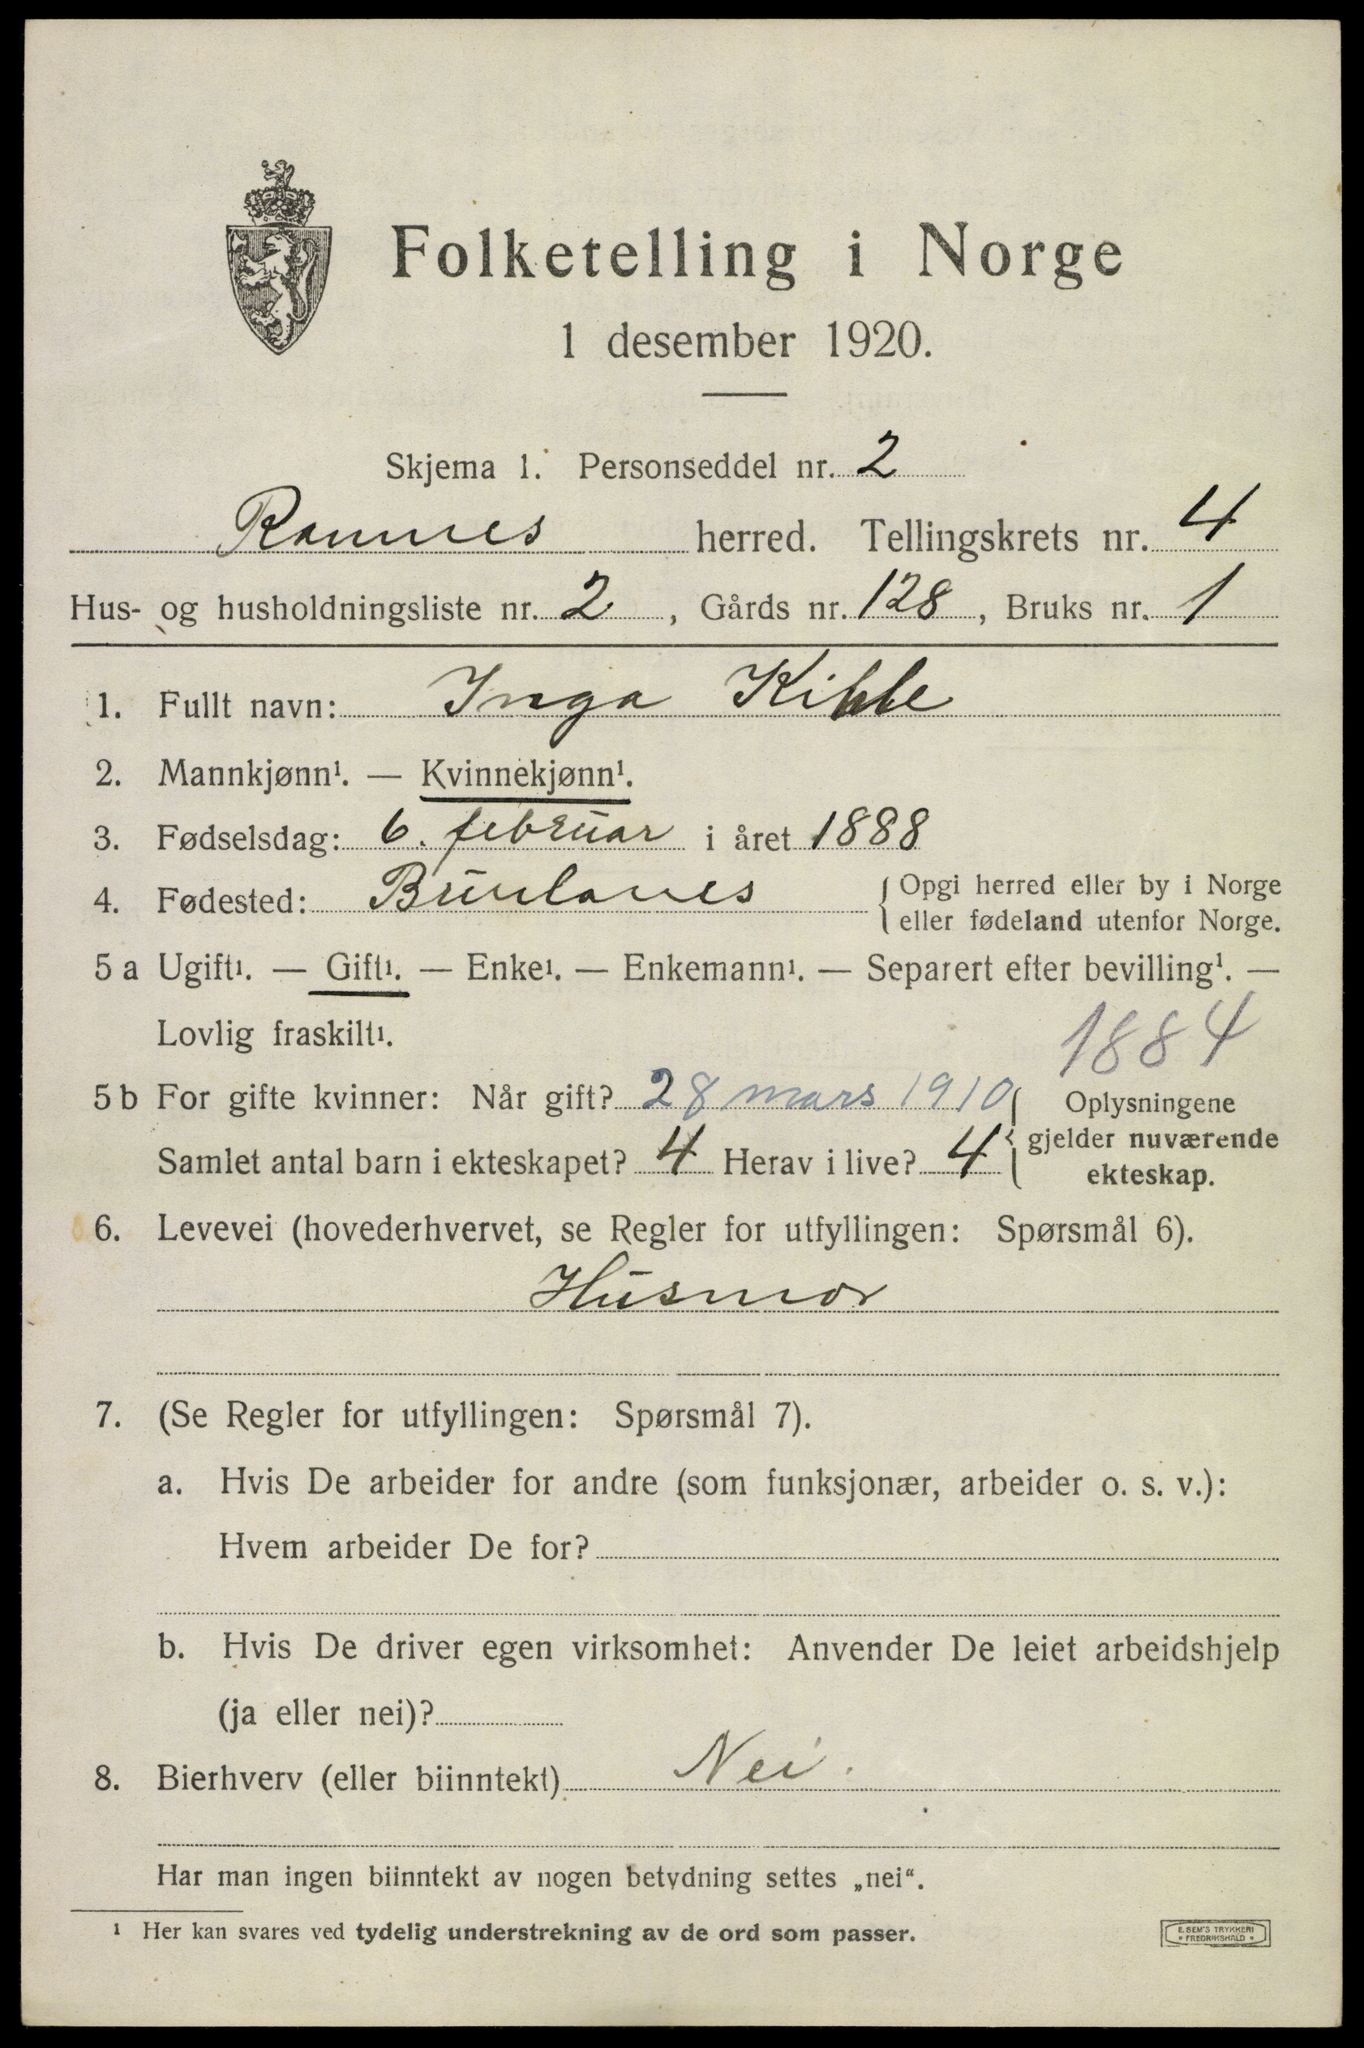 Folketelling i Norge
1 desember 1920.
Skjema 1. Personseddel nr. 2
Ramnes herred. Tellingskrets nr. 4
Hus- og husholdningsliste nr. 2, Gårds nr. 128, Bruks nr. 1
1. Fullt navn: Inga Kihle
2. Mannkjønn¹. — Kvinnekjønn¹.
3. Fødselsdag: 6. februar i året 1888
4. Fødested: Brunlanes { Opgi herred eller by i Norge
eller fødeland utenfor Norge.
5 a Ugift¹. — Gift¹. — Enke¹. — Enkemann¹. — Separert efter bevilling¹. —
Lovlig fraskilt¹.
1884
5 b For gifte kvinner: Når gift? 28 mars 1910 Oplysningene
Samlet antal barn i ekteskapet? 4 Herav i live? 4 gjelder nuværende
ekteskap.
6. Levevei (hovederhvervet, se Regler for utfyllingen: Spørsmål 6).
Husmor
7. (Se Regler for utfyllingen: Spørsmål 7).
a. Hvis De arbeider for andre (som funksjonær, arbeider o. s. v.):
Hvem arbeider De for?
b. Hvis De driver egen virksomhet: Anvender De leiet arbeidshjelp
(ja eller nei)?
8. Bierhverv (eller biinntekt) Nei.
Har man ingen biinntekt av nogen betydning settes „nei“.
¹ Her kan svares ved tydelig understrekning av de ord som passer.
E. SEM'S TRYKKERI
* FREDRIKSHALD *